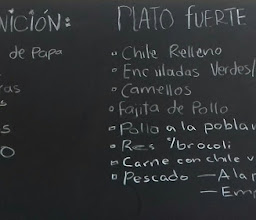 NICIÓN:
de Papa
as
s
O
PLATO fuERTE
Chile Relleno
Enchiladas Verdes/
Camellos
fajita de Pollo
Pollo a la poblan
Res %brocoli
Carne con chile v
Pescado — Alan
— Emp